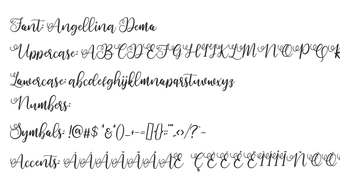 Font: Angellina Demo
Uppercase: ABCDEFGHIJKLMNOPQR
Lowercase: abcdefghijklmnopqrstuvwxyz
Numbers:
Symbols: !@#$ ^&*()_+-=[]{}:;"",.<>/?`~
Accents: ÀÁÂÃÄÅÆ ÇÈÉÊËÌÍÎÏÑÒÓÔ